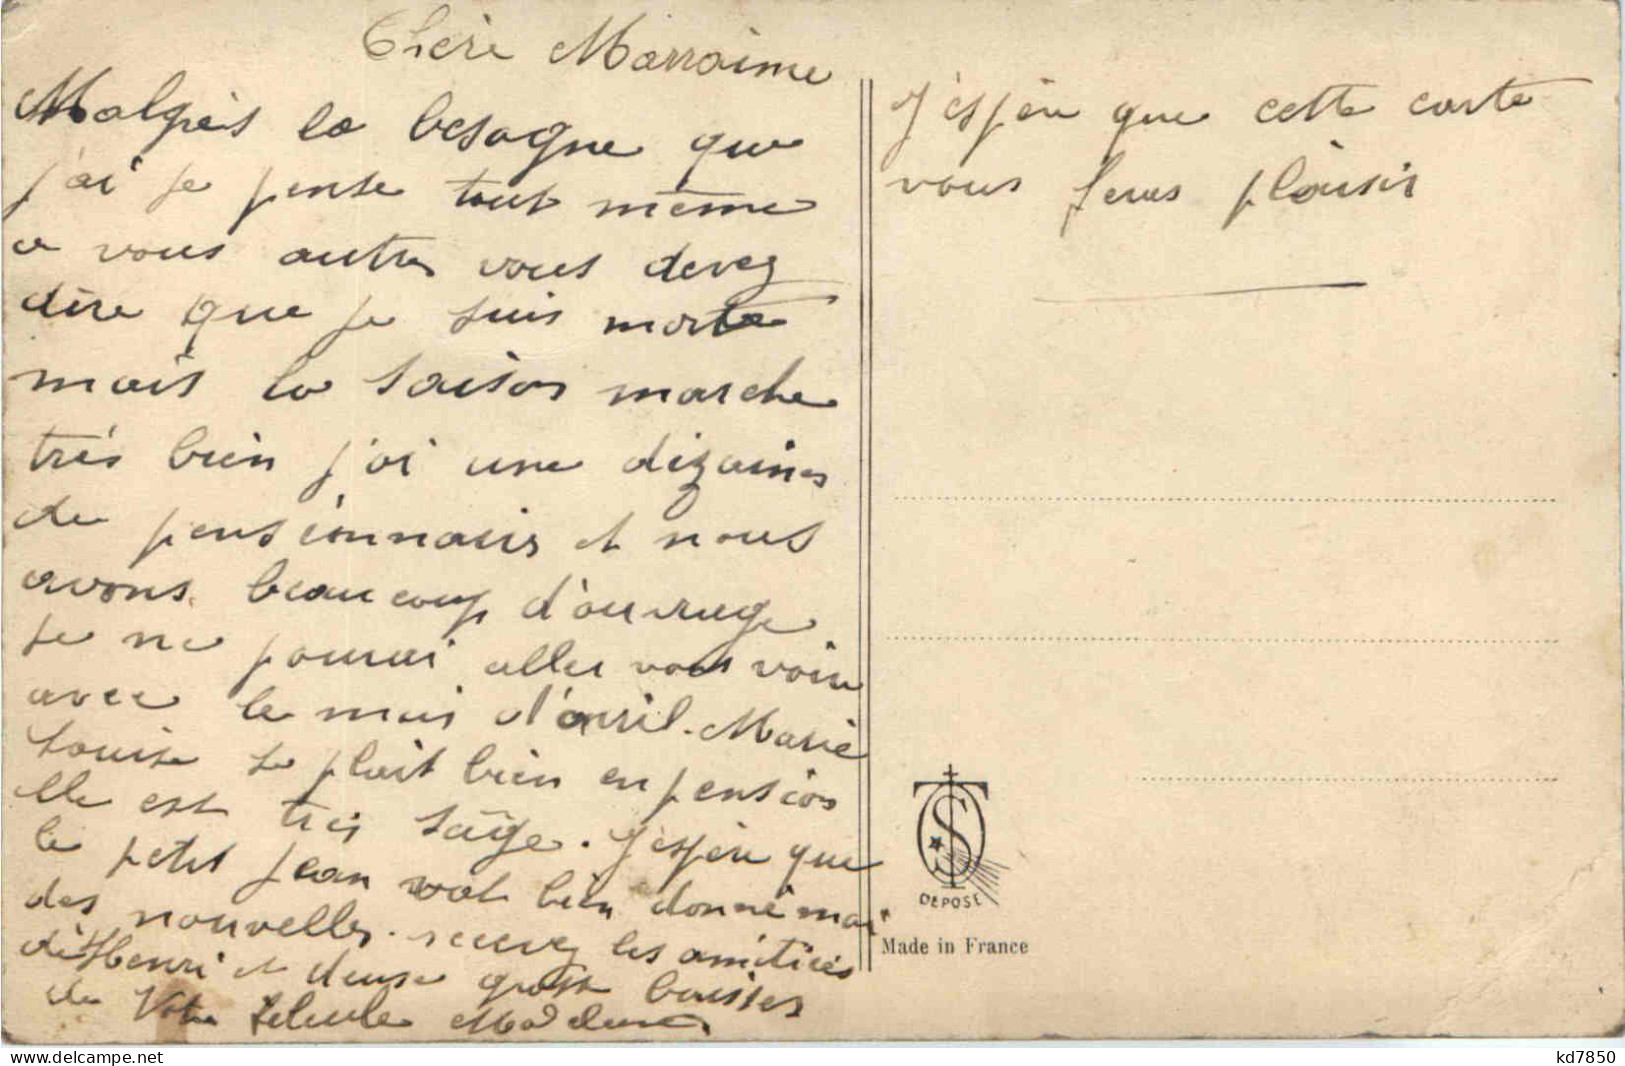 Chère Marraine
Malgrès la besogne que
j'ai je pense tout même
a vous autres vous devez
dire que je suis morte
mais la saison marche
très bien j'ai une dizaines
de pensionnairs et nous
avons beaucoup d'ouvrage
je ne pourrai aller vous voir
avec le mois d'avril. Marie
Louise se plait bien en pension
elle est très sâge. J'espère que
le petit Jean vat bien donné moi
des nouvelles. recevez les amitiés
de Henri et deuse gross baisses
de Votre Madeleine
j'espère que cette carte
vous feras plaisir
DEPOSE
Made in France
kd7850
https://www.delcampe.net